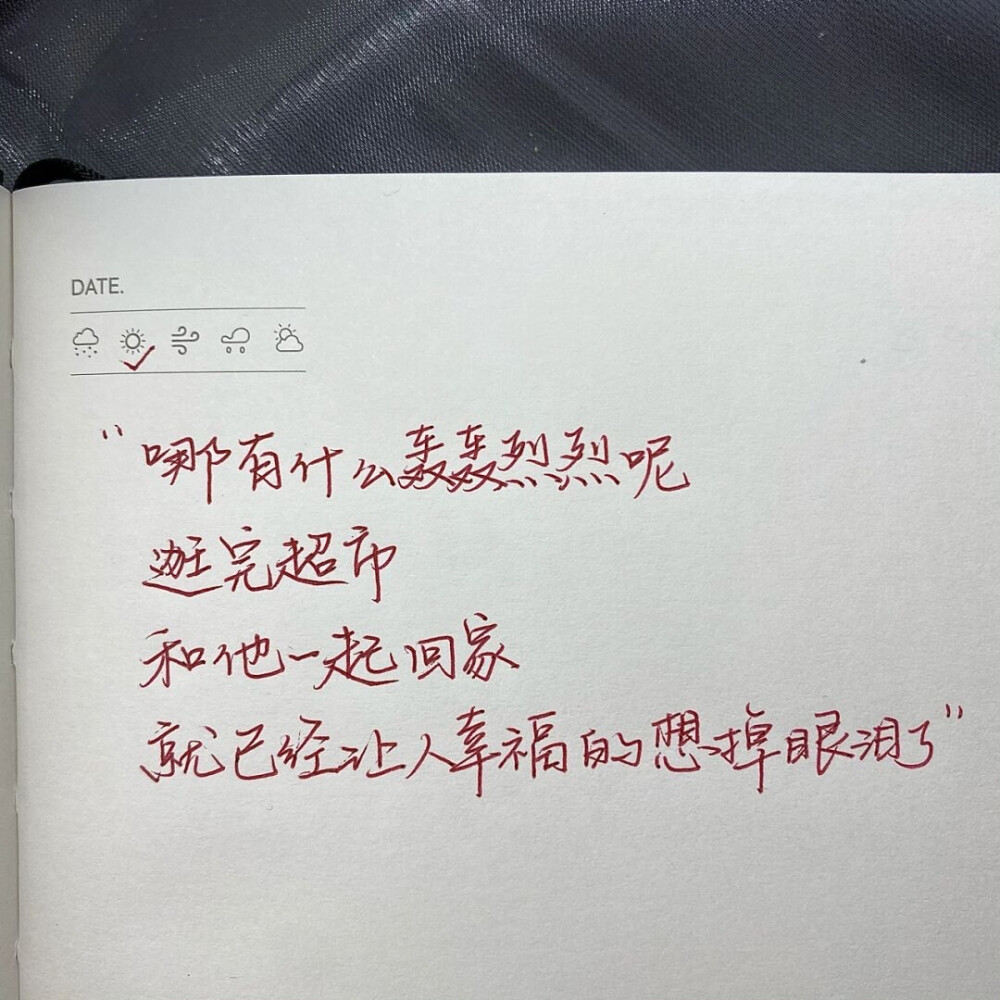 DATE.
“哪有什么轰轰烈烈呢
逛完超市
和他一起回家
就已经让人幸福的想掉眼泪了”